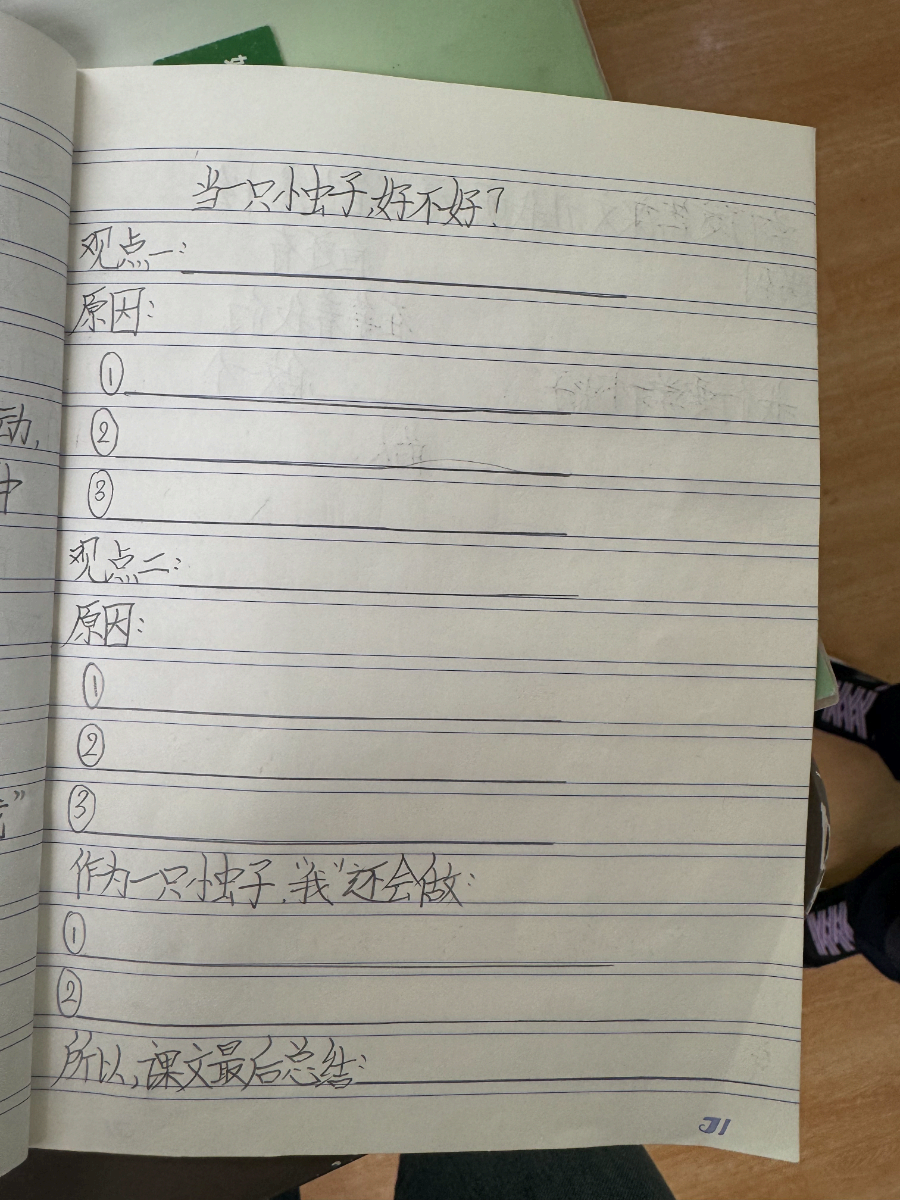 当一只小虫子,好不好?
观点一:
原因:
①
②
③
观点二:
原因:
①
②
③
作为一只小虫子,“我”还会做:
①
②
所以,课文最后总结:
31
动,
中
”